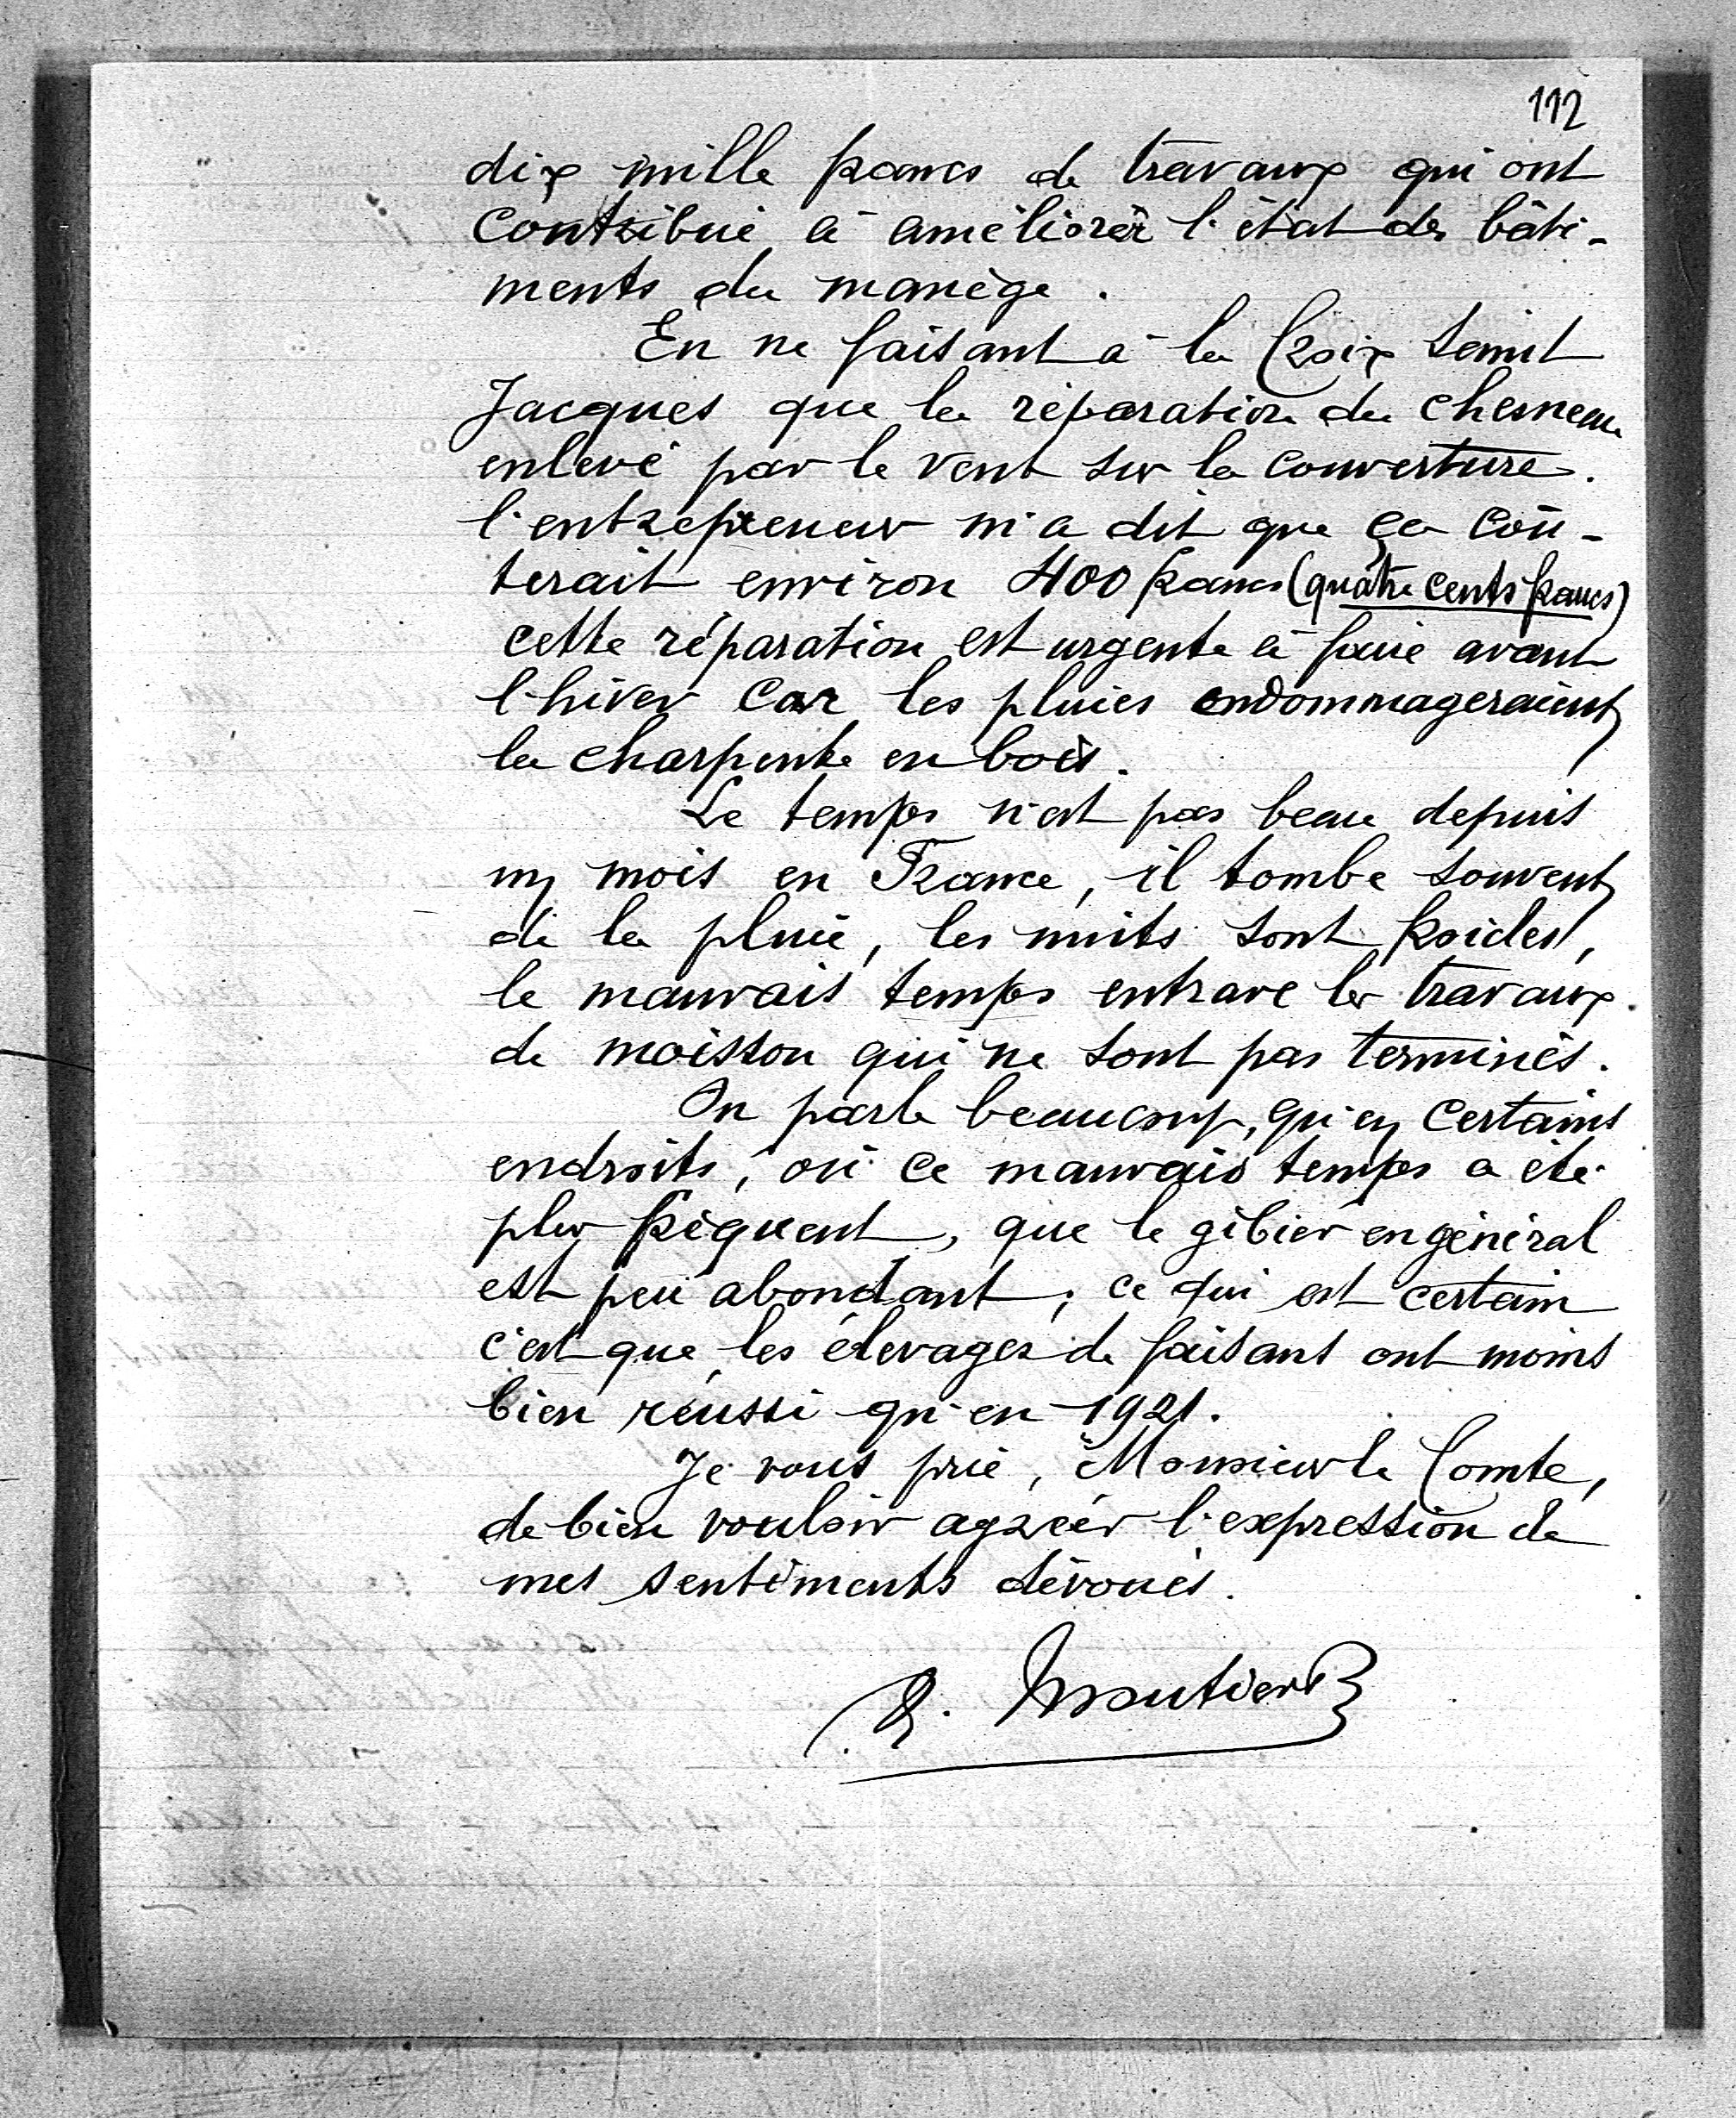 112
dix mille francs de travaux qui ont
contribué à améliorer l'état des bâti-
ments du manège.
En ne faisant à la Croix Saint
Jacques que la réparation du chesneau
enlevé par le vent sur la couverture.
l'entrepreneur m'a dit que ça coû-
terait environ 400 francs (quatre cents francs)
cette réparation est urgente à faire avant
l'hiver car les pluies endommageraient
la charpente en bois.
Le temps n'est pas beau depuis
un mois en France, il tombe souvent
de la pluie, les nuits sont froides,
le mauvais temps entrave les travaux
de moisson qui ne sont pas terminés.
On parle beaucoup, qu'en certains
endroits, où ce mauvais temps a été
plus fréquent, que le gibier en général
est peu abondant; ce qui est certain
c'est que les élevages de faisans ont moins
bien réussi qu'en 1921.
Je vous prie, Monsieur le Comte,
de bien vouloir agréer l'expression de
mes sentiments dévoués.
Moutier